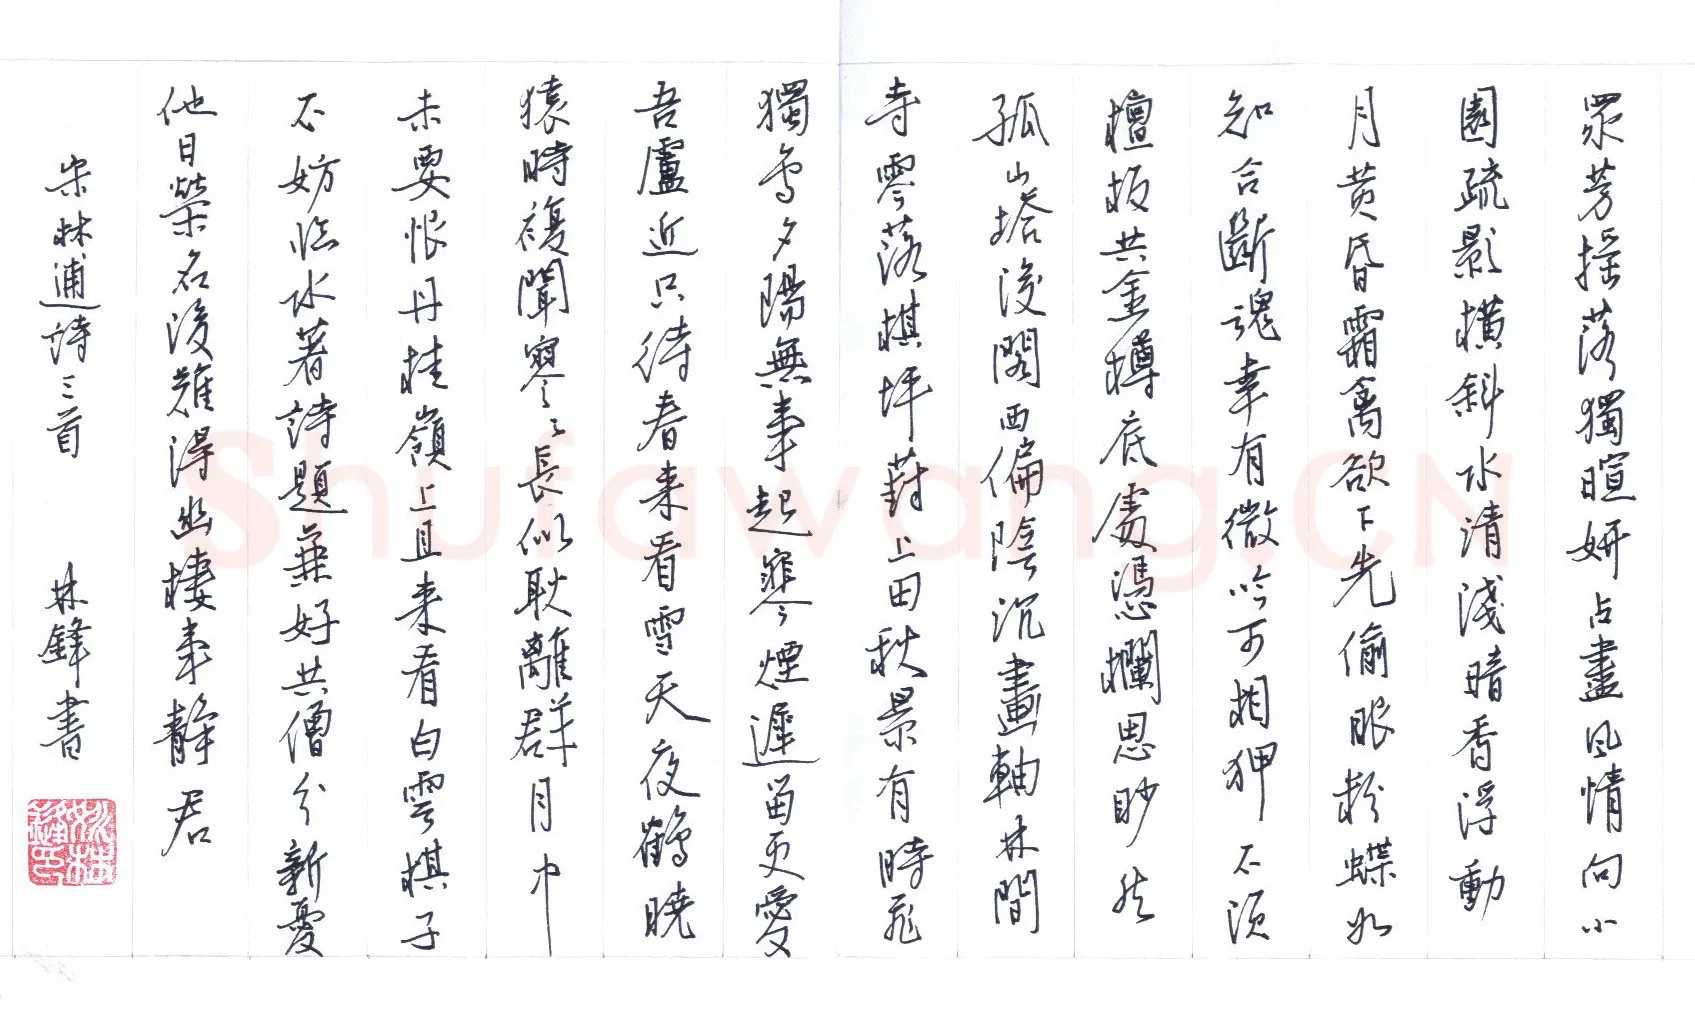 眾芳搖落獨暄妍占盡風情向小
園疏影橫斜水清淺暗香浮動
月黄昏霜禽欲下先偷眼粉蝶如
知合斷魂幸有微吟可相狎不須
檀板共金樽底處憑欄思眇然
孤山塔後閣西偏陰沉畫軸林間
寺零落棋坪葑上田秋景有時飛
獨鳥夕陽無事起寒煙遲留更愛
吾廬近只待春来看雪天夜鶴曉
猿時複聞寥々長似耿離群月中
未要恨丹桂嶺上且来看白雲棋子
不妨臨水著詩題兼好共僧分新憂
他日榮名後難得幽棲事靜君
宋林逋詩三首 林鋒書
Shufawang.CN